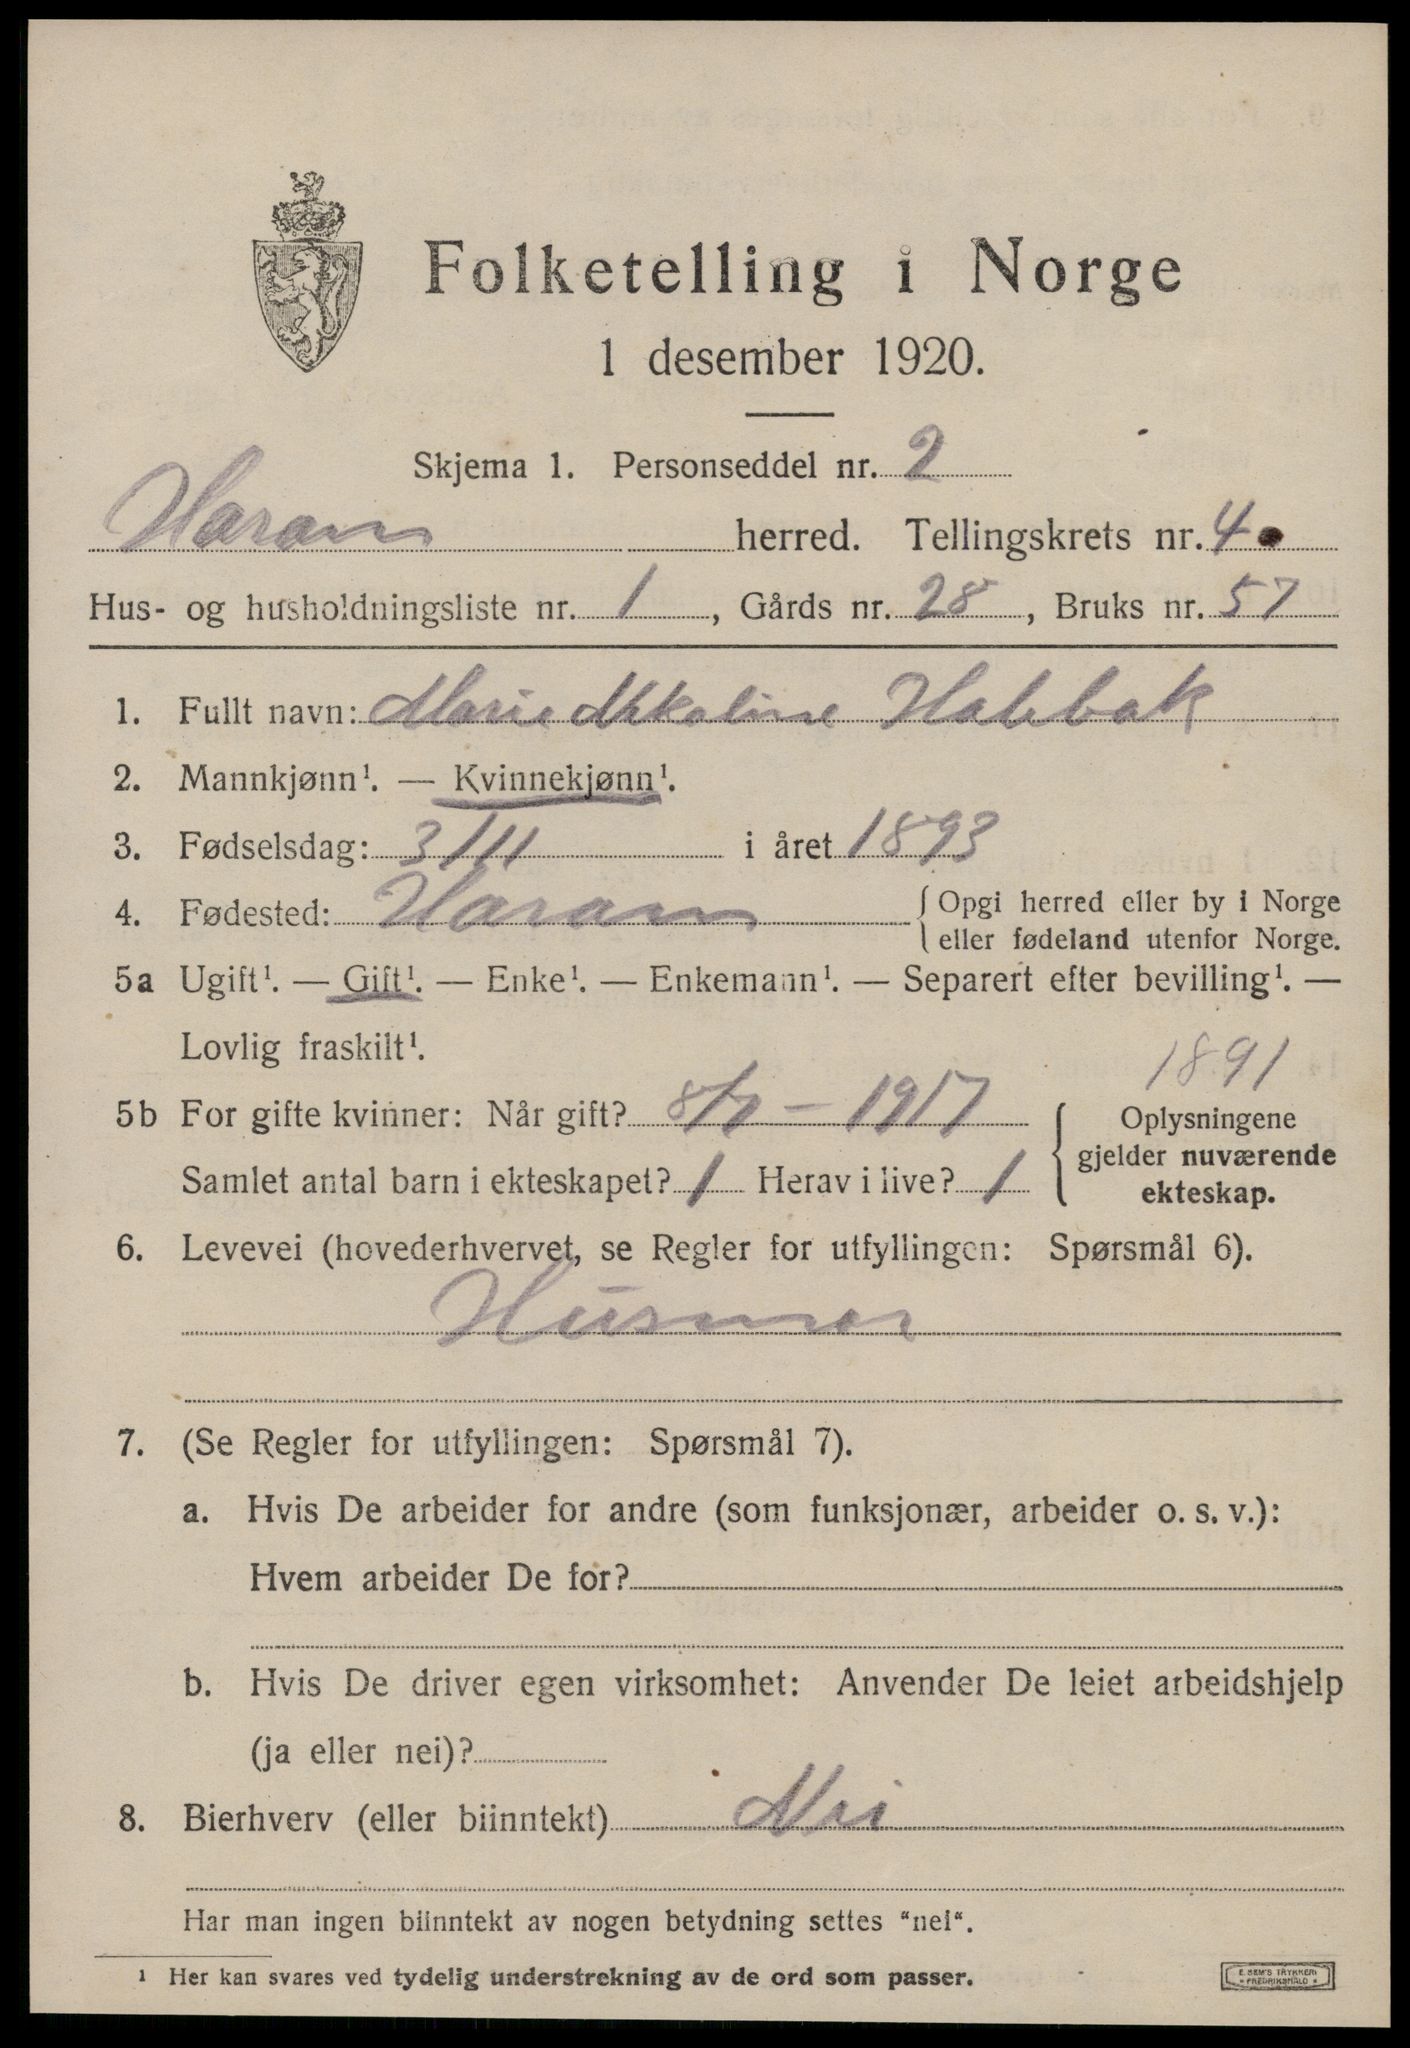 Folketelling i Norge
1 desember 1920.
Skjema 1. Personseddel nr. 2
Haram herred. Tellingskrets nr. 4.
Hus- og husholdningsliste nr. 1, Gårds nr. 28, Bruks nr. 57
1. Fullt navn: Marie Mikaline
2. Mannkjønn¹. — Kvinnekjønn¹.
3. Fødselsdag: 3/11 i året 1893
4. Fødested: Haram { Opgi herred eller by i Norge
eller fødeland utenfor Norge.
5a Ugift¹. — Gift¹. — Enke¹. — Enkemann¹. — Separert efter bevilling¹. —
Lovlig fraskilt¹.
1891
5b For gifte kvinner: Når gift? – 1917
Samlet antal barn i ekteskapet? 1 Herav i live? 1
{ Oplysningene
gjelder nuværende
ekteskap.
6. Levevei (hovederhvervet, se Regler for utfyllingen: Spørsmål 6).
Husmor
7. (Se Regler for utfyllingen: Spørsmål 7).
a. Hvis De arbeider for andre (som funksjonær, arbeider o. s. v.):
Hvem arbeider De for?
b. Hvis De driver egen virksomhet: Anvender De leiet arbeidshjelp
(ja eller nei)?
8. Bierhverv (eller biinntekt) Nei
Har man ingen biinntekt av nogen betydning settes “nei“.
¹ Her kan svares ved tydelig understrekning av de ord som passer.
E. SEM'S TRYKKERI
* FREDRIKSHALD *